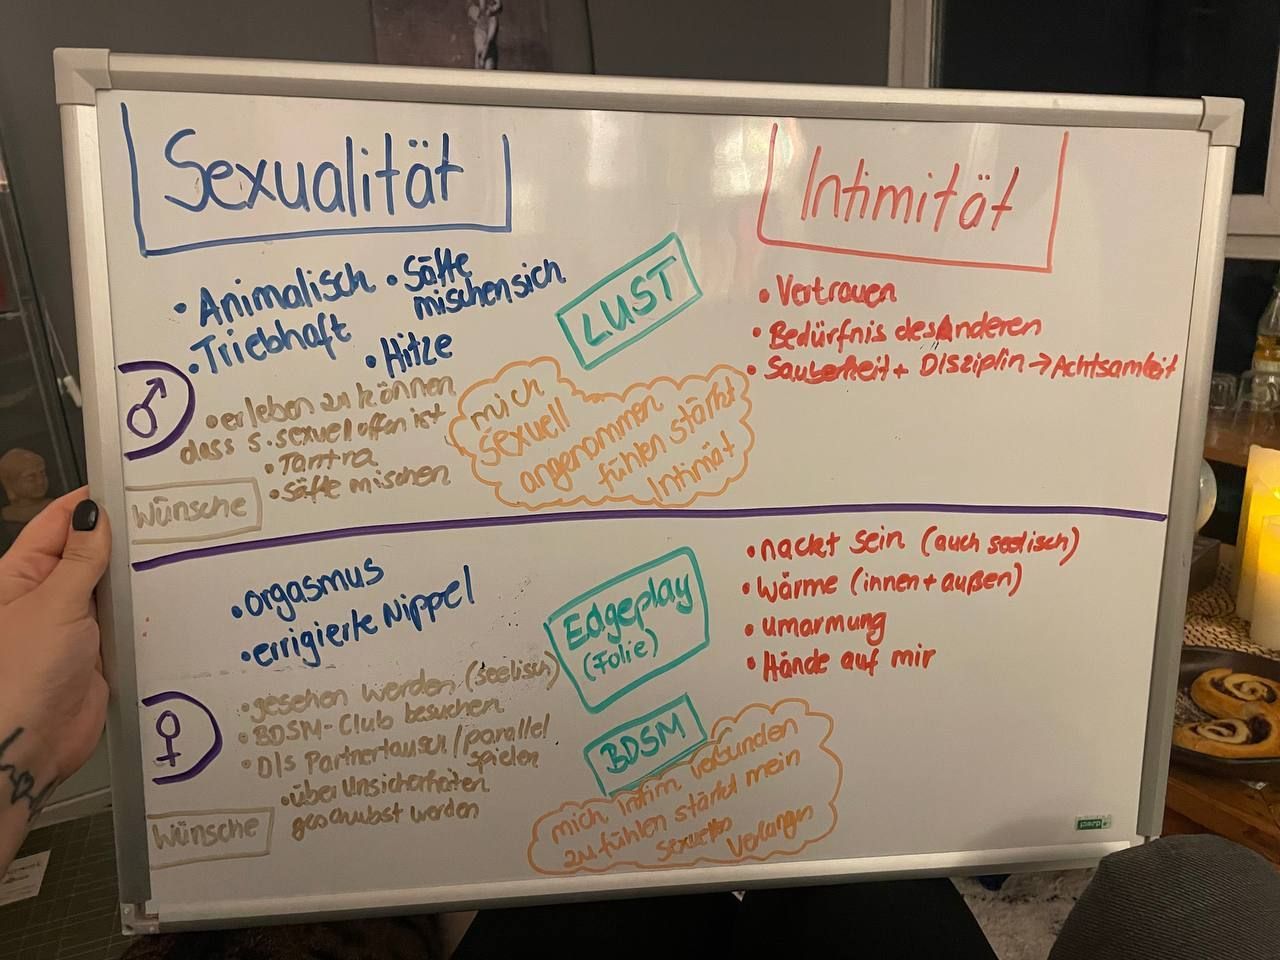 Sexualität
Intimität
• Animalisch
• Triebhaft
• Säfte
mischen sich
• Hitze
LUST
• Vertrauen
• Bedürfnis des Anderen
• Sauberkeit + Disziplin → Achtsamkeit
♂
• erleben zu können
dass s. sexuell offen ist
• Tantra
• Säfte mischen
Wünsche
mich
sexuell
angenommen
fühlen stärkt
Intimität
• orgasmus
• errigierte Nippel
Edgeplay
(Folie)
BDSM
• nackt sein (auch seelisch)
• wärme (innen + außen)
• umarmung
• Hände auf mir
♀
• gesehen werden (seelisch)
• BDSM-Club besuchen
• D/s Partnertausch / parallel
spielen
• über Unsicherheiten
geschubst werden
Wünsche
mich intim verbunden
zu fühlen stärkt mein
sexuelles
Verlangen